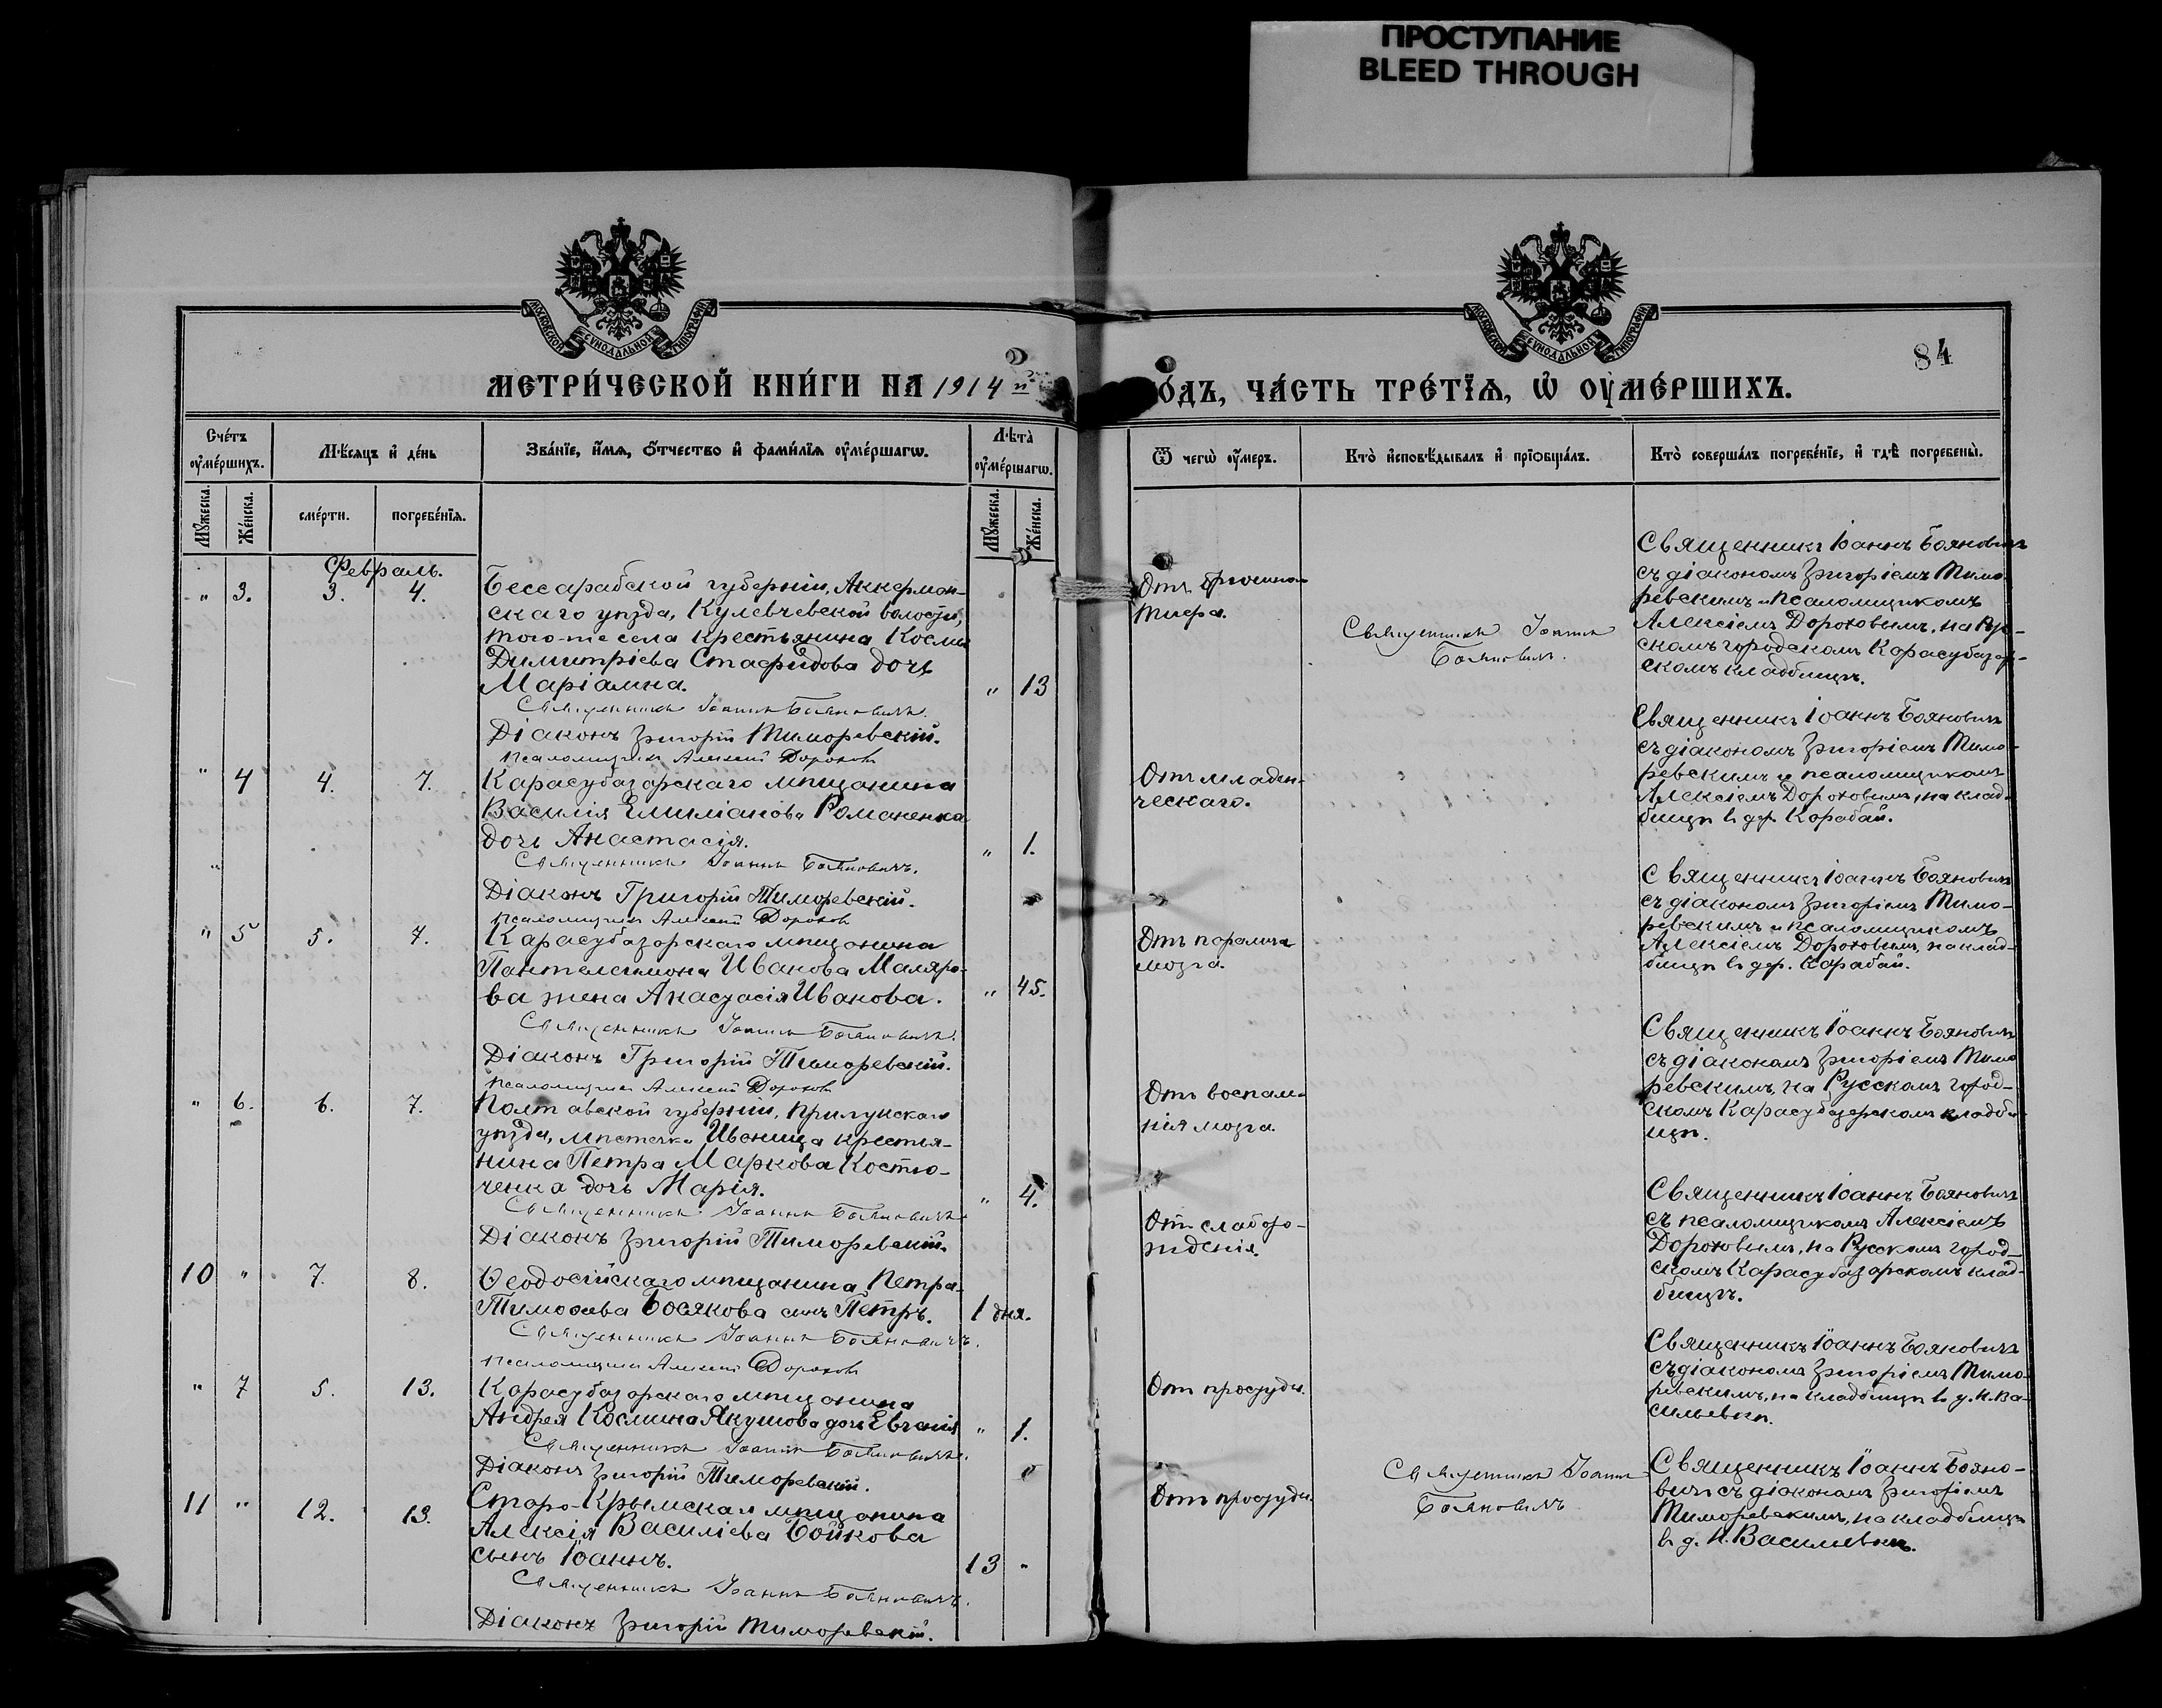 ПРОСТУПАНИЕ
BLEED THROUGH
МОСКОВСКОЙ СѴНОДАЛЬНОЙ ТИПОГРАФІИ
МОСКОВСКОЙ СѴНОДАЛЬНОЙ ТИПОГРАФІИ
84
МЕТРИ́ЧЕСКОЙ КНИ́ГИ НА 1914 й
О́ДЪ, ЧА́СТЬ ТРЕ́ТЇѦ, Ѡ҆ ОУ҆МЕ́РШИХЪ.
Сче́тъ оу҆ме́ршихъ.
Мѣ́сяцъ и҆ де́нь
Зва́нїе, и҆́мѧ, ѻ҆́тчество и҆ фами́лїѧ оу҆ме́ршагѡ.
Лѣ̀та̀ оу҆ме́ршагѡ.
Ѿ чегѡ̀ оу҆́меръ.
Кто̀ и҆сповѣ́дывалъ и҆ прїѡбща́лъ.
Кто̀ соверша́лъ погребе́нїе, и҆ гдѣ̀ погребены̀.
Мꙋ́жеска.
Же́нска.
сме́рти.
погребе́нїѧ.
Мꙋ́жеска.
Же́нска.
Февраль.
" 3. 3. 4.
Бессарабской губерніи, Аккерман-
скаго уѣзда, Кулевчевской волости,
того-же села крестьянина Космы
Димитріева Стафидова дочь
Маріамна. " 13
Священникъ Іоаннъ Бояновичъ.
Діаконъ Григорій Тиморевскій.
Псаломщикъ Алексій Дороховъ
Отъ
тифа.
Священникъ Іоаннъ
Бояновичъ.
Священникъ Іоаннъ Бояновичъ
съ діакономъ Григоріемъ Тимо-
ревскимъ и псаломщикомъ
Алексіемъ Дороховымъ, на Рус-
скомъ городскомъ Карасубазар-
скомъ кладбищѣ.
" 4 4. 7.
Карасубазарскаго мѣщанина
Василія Емиліанова Романенка
дочь Анастасія. " 1.
Священникъ Іоаннъ Бояновичъ.
Діаконъ Григорій Тиморевскій.
Псаломщикъ Алексій Дороховъ
Отъ младен-
ческаго.
Священникъ Іоаннъ Бояновичъ
съ діакономъ Григоріемъ Тимо-
ревскимъ и псаломщикомъ
Алексіемъ Дороховымъ, на клад-
бищѣ въ дер. Карабай.
" 5 5. 7.
Карасубазарскаго мѣщанина
Пантелеимона Иванова Маляро-
ва жена Анастасія Иванова. " 45.
Священникъ Іоаннъ Бояновичъ.
Діаконъ Григорій Тиморевскій.
Псаломщикъ Алексій Дороховъ
Отъ паралича
мозга.
Священникъ Іоаннъ Бояновичъ
съ діакономъ Григоріемъ Тимо-
ревскимъ и псаломщикомъ
Алексіемъ Дороховымъ, на клад-
бищѣ въ дер. Карабай.
" 6. 6. 7.
Полтавской губерніи, Прилукскаго
уѣзда, мѣстечка Иваница крестья-
нина Петра Маркова Костю-
ченка дочь Марія. " 4.
Священникъ Іоаннъ Бояновичъ.
Діаконъ Григорій Тиморевскій.
Отъ воспале-
нія мозга.
Священникъ Іоаннъ Бояновичъ
съ діакономъ Григоріемъ Тимо-
ревскимъ, на Русскомъ город-
скомъ Карасубазарскомъ кладби-
щѣ.
10 " 7. 8.
Ѳеодосійскаго мѣщанина Петра
Тимоѳеева Босякова сынъ Петръ. 1 дня.
Священникъ Іоаннъ Бояновичъ.
Псаломщикъ Алексій Дороховъ
Отъ слабо-
рожденія.
Священникъ Іоаннъ Бояновичъ
съ псаломщикомъ Алексіемъ
Дороховымъ, на Русскомъ город-
скомъ Карасубазарскомъ клад-
бищѣ.
" 7 5. 13.
Карасубазарскаго мѣщанина
Андрея Космина Якушова дочь Евгенія " 1.
Священникъ Іоаннъ Бояновичъ.
Діаконъ Григорій Тиморевскій.
Отъ простуды.
Священникъ Іоаннъ Бояновичъ
съ діакономъ Григоріемъ Тимо-
ревскимъ, на кладбищѣ въ д. Н. Ва-
сильевкѣ.
11 " 12. 13.
Старо-Крымскаго мѣщанина
Алексія Василіева Бойкова
сынъ Іоаннъ. 13 "
Священникъ Іоаннъ Бояновичъ.
Діаконъ Григорій Тиморевскій.
Отъ простуды.
Священникъ Іоаннъ
Бояновичъ
Священникъ Іоаннъ Бояно-
вичъ съ діакономъ Григоріемъ
Тиморевскимъ, на кладбищѣ
въ д. Н. Васильевкѣ.